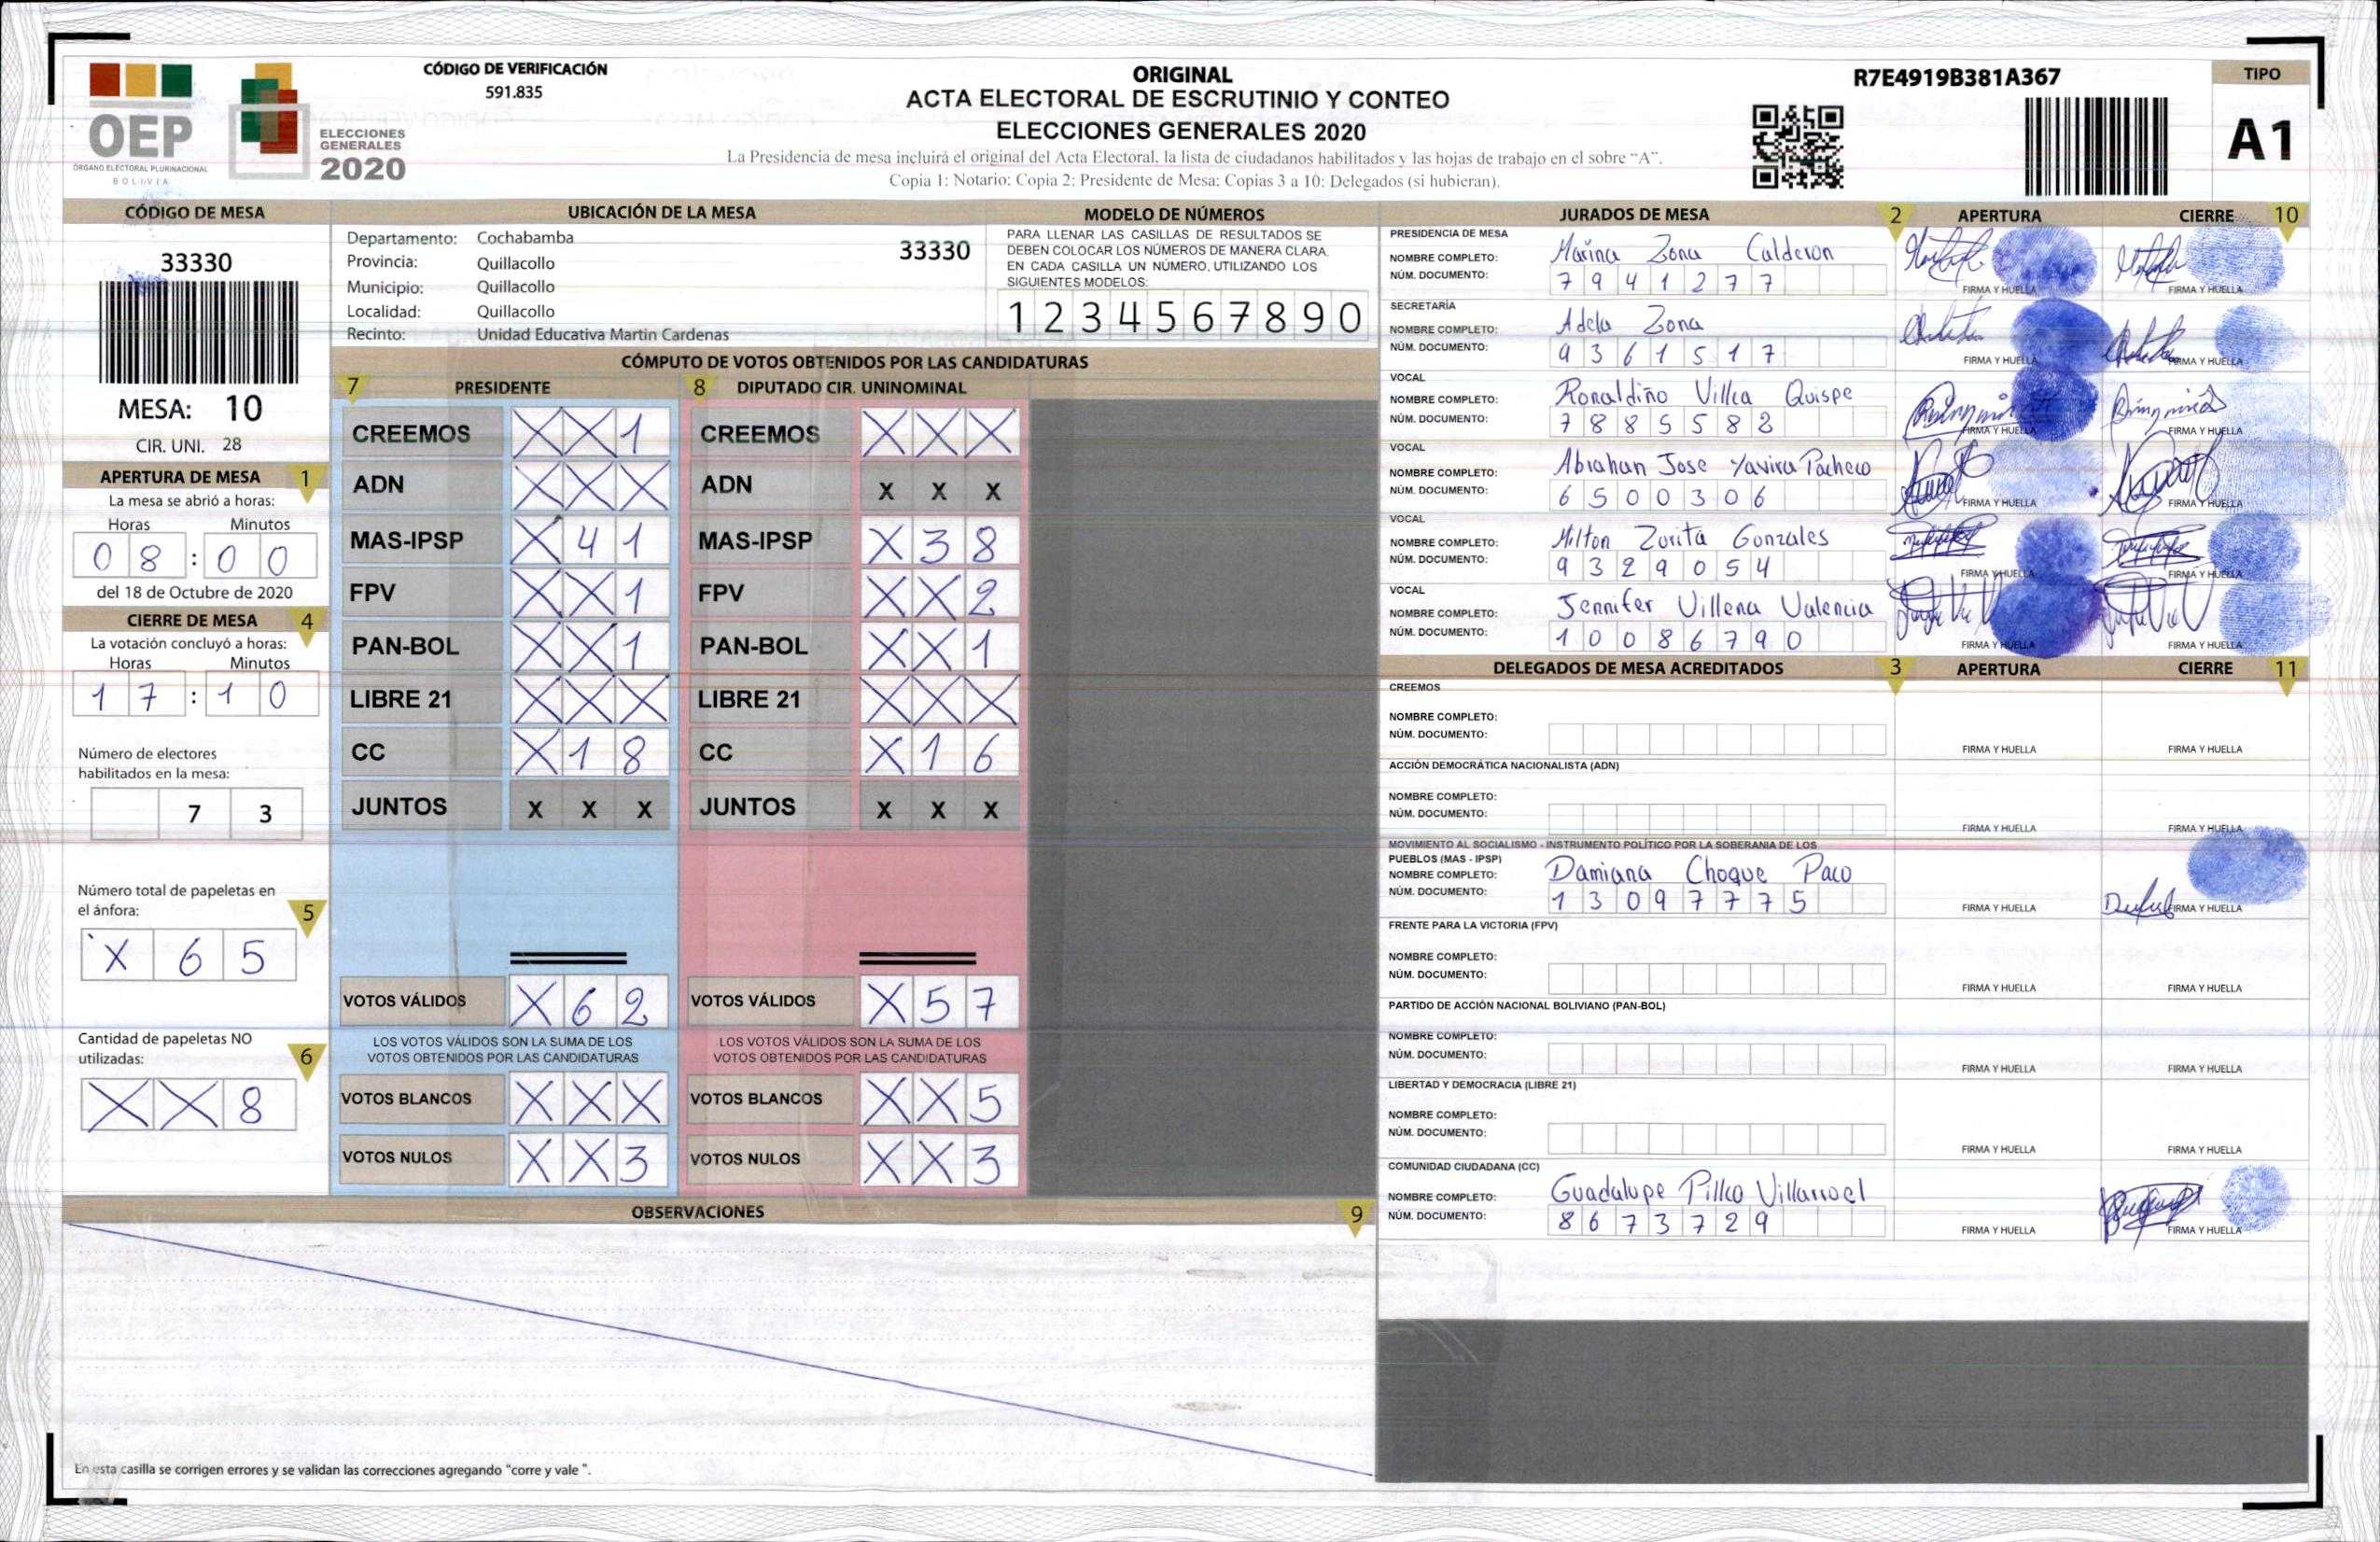 OEP
ÓRGANO ELECTORAL PLURINACIONAL
BOLIVIA
ELECCIONES
GENERALES
2020
CÓDIGO DE VERIFICACIÓN
591.835
ORIGINAL
ACTA ELECTORAL DE ESCRUTINIO Y CONTEO
ELECCIONES GENERALES 2020
La Presidencia de mesa incluirá el original del Acta Electoral, la lista de ciudadanos habilitados y las hojas de trabajo en el sobre "A".
Copia 1: Notario: Copia 2: Presidente de Mesa: Copias 3 a 10: Delegados (si hubieran).
R7E4919B381A367
TIPO
A1
CÓDIGO DE MESA
33330
MESA: 10
CIR. UNI. 28
APERTURA DE MESA 1
La mesa se abrió a horas:
Horas Minutos
0 8 : 0 0
del 18 de Octubre de 2020
CIERRE DE MESA 4
La votación concluyó a horas:
Horas Minutos
1 7 : 1 0
Número de electores
habilitados en la mesa:
7 3
Número total de papeletas en
el ánfora: 5
X 6 5
Cantidad de papeletas NO
utilizadas: 6
X X 8
UBICACIÓN DE LA MESA
Departamento: Cochabamba 33330
Provincia: Quillacollo
Municipio: Quillacollo
Localidad: Quillacollo
Recinto: Unidad Educativa Martin Cardenas
MODELO DE NÚMEROS
PARA LLENAR LAS CASILLAS DE RESULTADOS SE
DEBEN COLOCAR LOS NÚMEROS DE MANERA CLARA.
EN CADA CASILLA UN NÚMERO, UTILIZANDO LOS
SIGUIENTES MODELOS:
1 2 3 4 5 6 7 8 9 0
CÓMPUTO DE VOTOS OBTENIDOS POR LAS CANDIDATURAS
7 PRESIDENTE 8 DIPUTADO CIR. UNINOMINAL
CREEMOS X X 1 CREEMOS X X X
ADN X X X ADN X X X
MAS-IPSP X 4 1 MAS-IPSP X 3 8
FPV X X 1 FPV X X 2
PAN-BOL X X 1 PAN-BOL X X 1
LIBRE 21 X X X LIBRE 21 X X X
CC X 1 8 CC X 1 6
JUNTOS X X X JUNTOS X X X
VOTOS VÁLIDOS X 6 2 VOTOS VÁLIDOS X 5 7
LOS VOTOS VÁLIDOS SON LA SUMA DE LOS LOS VOTOS VÁLIDOS SON LA SUMA DE LOS
VOTOS OBTENIDOS POR LAS CANDIDATURAS VOTOS OBTENIDOS POR LAS CANDIDATURAS
VOTOS BLANCOS X X X VOTOS BLANCOS X X 5
VOTOS NULOS X X 3 VOTOS NULOS X X 3
OBSERVACIONES 9
En esta casilla se corrigen errores y se validan las correcciones agregando "corre y vale ".
JURADOS DE MESA 2 APERTURA CIERRE 10
PRESIDENCIA DE MESA
NOMBRE COMPLETO: Marina Zona Calderon
NÚM. DOCUMENTO: 7 9 4 1 2 7 7
FIRMA Y HUELLA FIRMA Y HUELLA
SECRETARÍA
NOMBRE COMPLETO: Adela Zona
NÚM. DOCUMENTO: 9 3 6 1 5 1 7
FIRMA Y HUELLA FIRMA Y HUELLA
VOCAL
NOMBRE COMPLETO: Ronaldiño Villca Quispe
NÚM. DOCUMENTO: 7 8 8 5 5 8 2
FIRMA Y HUELLA FIRMA Y HUELLA
VOCAL
NOMBRE COMPLETO: Abrahan Jose Yavira Pacheco
NÚM. DOCUMENTO: 6 5 0 0 3 0 6
FIRMA Y HUELLA FIRMA Y HUELLA
VOCAL
NOMBRE COMPLETO: Milton Zurita Gonzales
NÚM. DOCUMENTO: 9 3 2 9 0 5 4
FIRMA Y HUELLA FIRMA Y HUELLA
VOCAL
NOMBRE COMPLETO: Jennifer Villena Valencia
NÚM. DOCUMENTO: 1 0 0 8 6 7 9 0
FIRMA Y HUELLA FIRMA Y HUELLA
DELEGADOS DE MESA ACREDITADOS 3 APERTURA CIERRE 11
CREEMOS
NOMBRE COMPLETO:
NÚM. DOCUMENTO:
FIRMA Y HUELLA FIRMA Y HUELLA
ACCIÓN DEMOCRÁTICA NACIONALISTA (ADN)
NOMBRE COMPLETO:
NÚM. DOCUMENTO:
FIRMA Y HUELLA FIRMA Y HUELLA
MOVIMIENTO AL SOCIALISMO - INSTRUMENTO POLÍTICO POR LA SOBERANIA DE LOS
PUEBLOS (MAS - IPSP)
NOMBRE COMPLETO: Damiana Choque Paco
NÚM. DOCUMENTO: 1 3 0 9 7 7 7 5
FIRMA Y HUELLA FIRMA Y HUELLA
FRENTE PARA LA VICTORIA (FPV)
NOMBRE COMPLETO:
NÚM. DOCUMENTO:
FIRMA Y HUELLA FIRMA Y HUELLA
PARTIDO DE ACCIÓN NACIONAL BOLIVIANO (PAN-BOL)
NOMBRE COMPLETO:
NÚM. DOCUMENTO:
FIRMA Y HUELLA FIRMA Y HUELLA
LIBERTAD Y DEMOCRACIA (LIBRE 21)
NOMBRE COMPLETO:
NÚM. DOCUMENTO:
FIRMA Y HUELLA FIRMA Y HUELLA
COMUNIDAD CIUDADANA (CC)
NOMBRE COMPLETO: Guadalupe Pillco Villarroel
NÚM. DOCUMENTO: 8 6 7 3 7 2 9
FIRMA Y HUELLA FIRMA Y HUELLA